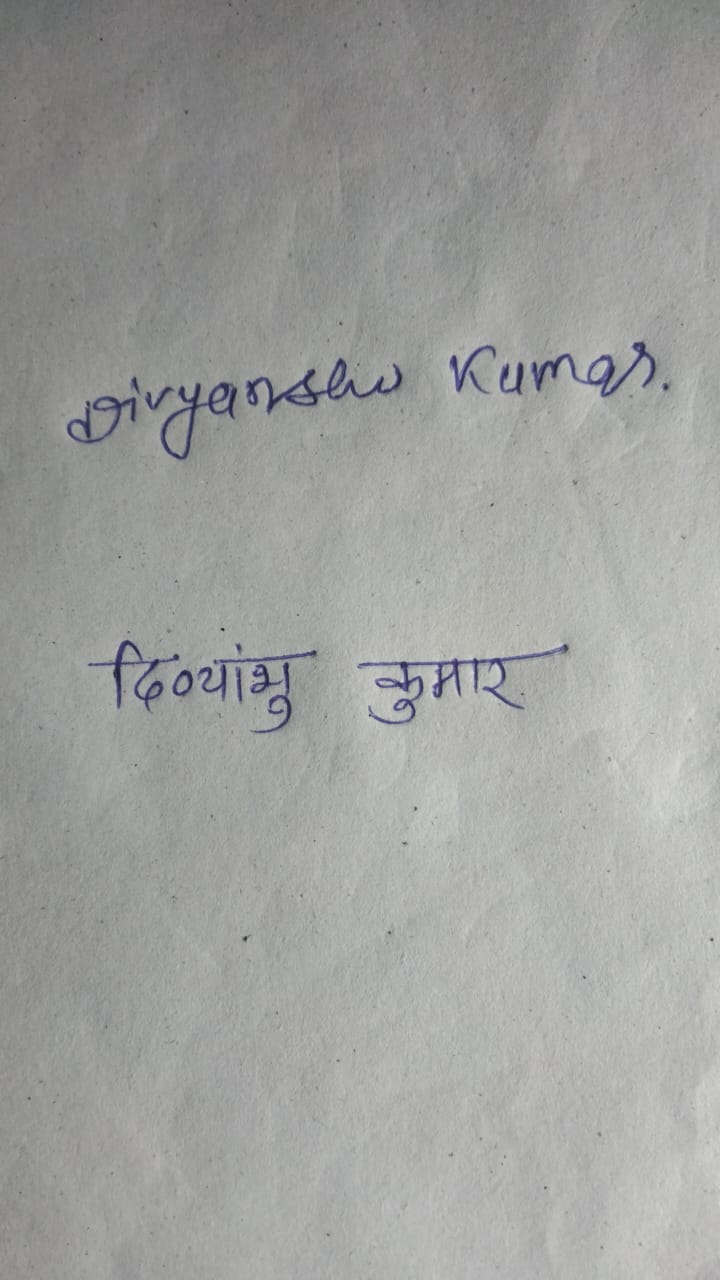 Divyanshu Kumar.
दिव्यांशु कुमार